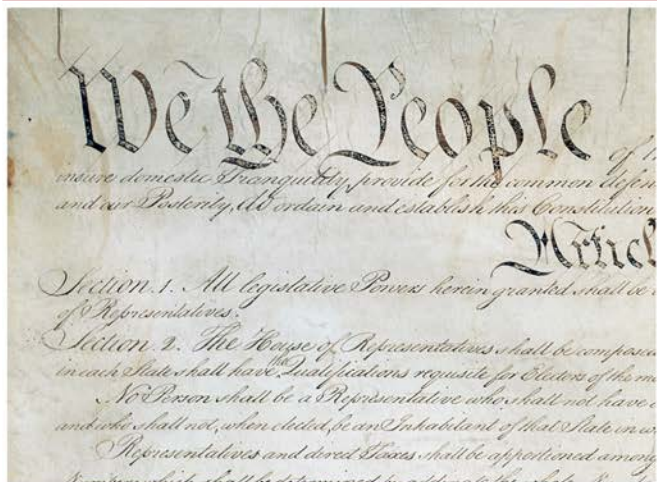 We the People of th
insure domestic Tranquility, provide for the common defen
and our Posterity, do ordain and establish this Constitution
Articl
Section. 1. All legislative Powers herein granted shall be
of Representatives.
Section. 2. The House of Representatives shall be composed
in each State shall have the Qualifications requisite for Electors of the m
No Person shall be a Representative who shall not have
and who shall not, when elected, be an Inhabitant of that State in w
Representatives and direct Taxes shall be apportioned among
Numbers, which shall be determined by adding to the whole Num